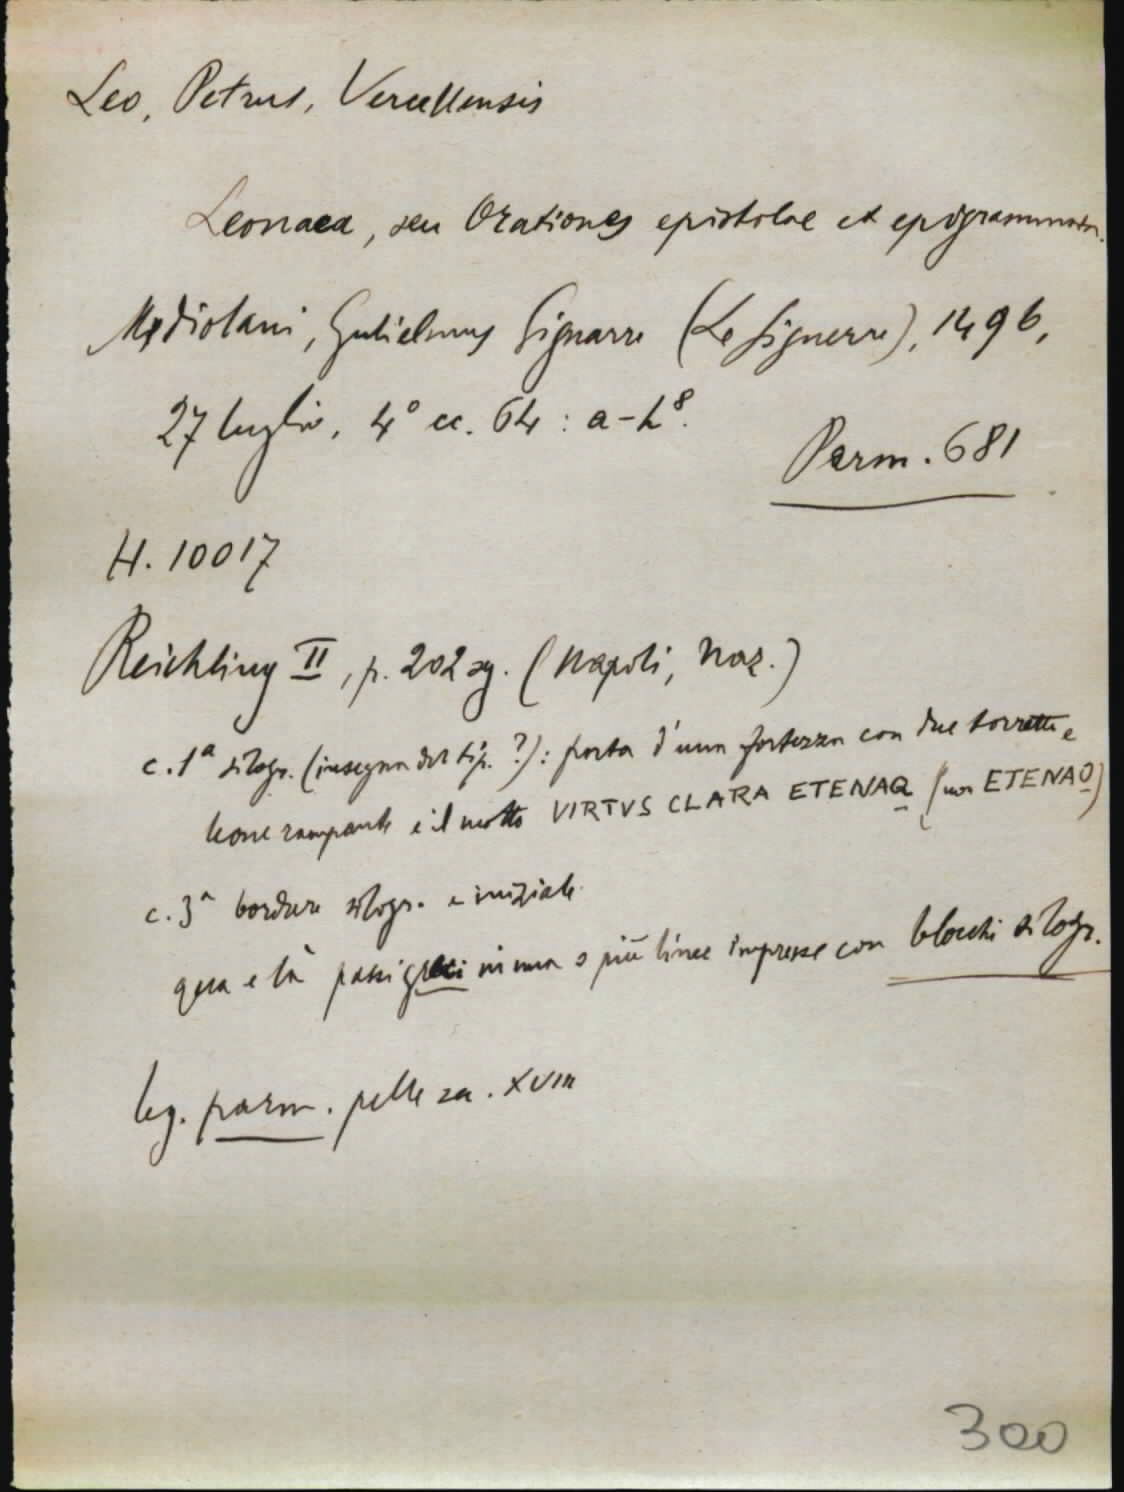 Leo, Petrus, Vercellensis
Leonaea, seu Orationes epistolae et epigrammata.
Mediolani, Gulielmus Signarre (Le Signerre), 1496,
27 luglio, 4° cc. 64: a-h⁸.
Parm. 681
H. 10017
Reichling II, p. 202 sg. (Napoli, Naz.)
c. 1ª silogr. (insegna del tip. ?): porta d'una fortezza con due torrette e
leone rampante e il motto VIRTVS CLARA ETENAQ (non ETENAO)
c. 3ª bordure silogr. e iniziale.
qua e là passi greci in una o più linee impresse con blocchi silogr.
leg. parm. pelle za. XVIII
300